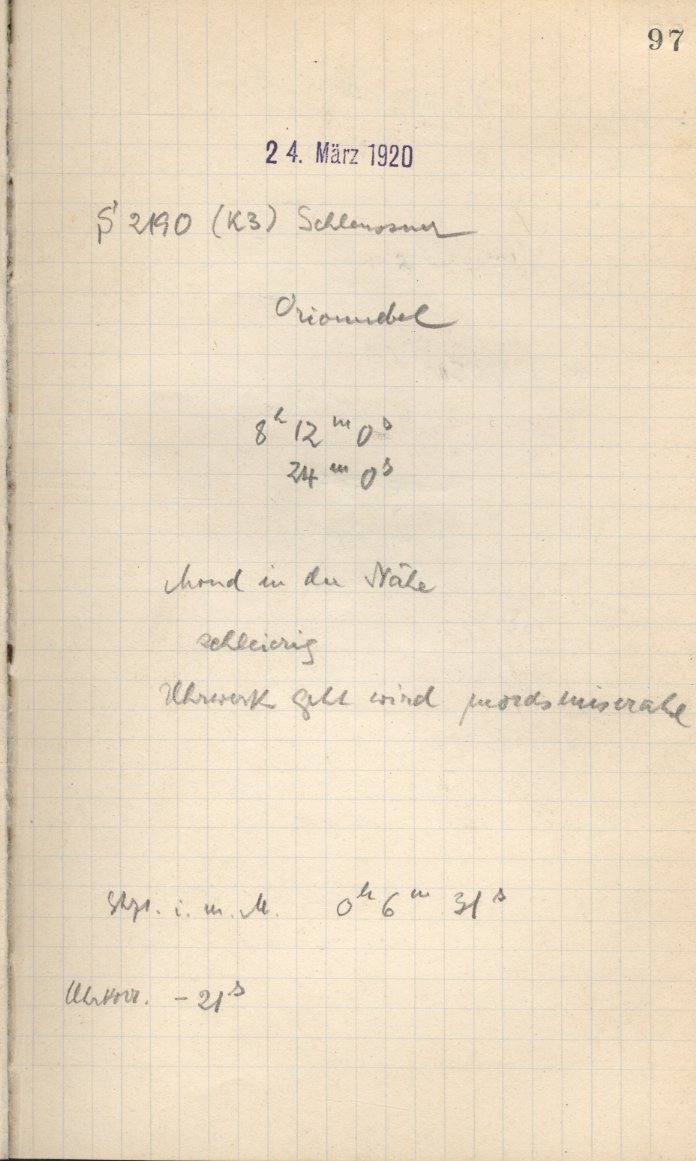 97
24. März 1920
2190 (K3) Schleussner
Orionnebel
8h 12m 0s
24m 0s
Mond in der Nähe
schleierig
Uhrwerk geht wird mordsmiserabel
i. m. M. 0h 6m 31s
Uhrkorr. - 21s